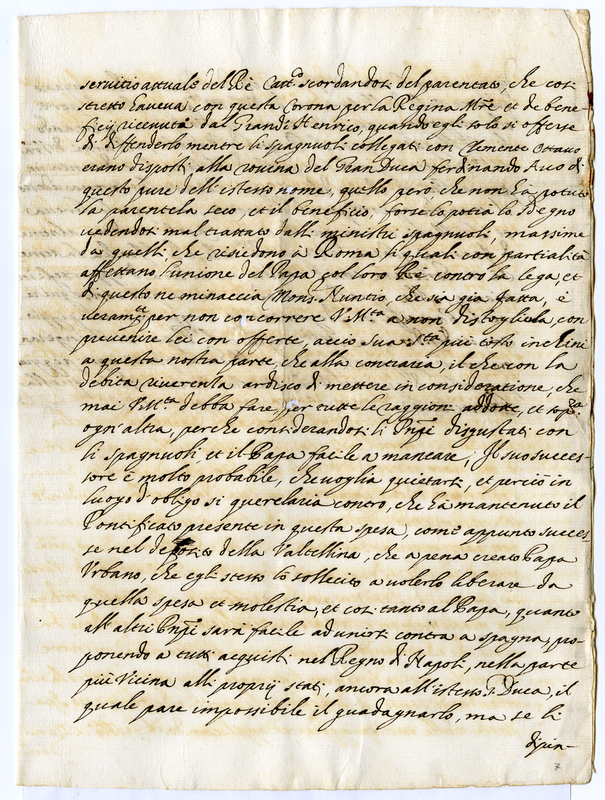 servitio attuale del Rè Catt.co scordandosi del parentato, che con
stretto haveva con questa Corona per la Regina Mre et de bene
ficij ricevuta dal Grandi Henrico, quando egli solo si offerse
di diffenderlo mentre li spagnuoli collegati con Clemente Ottavo
erano disposti alla rovina del Gran Duca ferdinando Avo di
questo pure dell'istesso nome, quello però che non ha potuto
la parentela seco, et il beneficio, forse lo potrà lo sdegno
vedendosi mal trattato dalli ministri spagnuoli, massime
da quelli che risiedono à Roma li quali con partialità
affettano l'unione del Papa col loro Rè contro la lega, et
di questo ne minaccia Mons. Nuntio, che sia già fatta, è
veram.te per non concorrere V.M.ta a non distoglierla, con
prevenire lei con offerte, acciò sua S.tà più tosto inclini
a questa nostra parte, che alla contraria, il che con la
debita riverenza ardisco di mettere in consideratione, che
mai V.M.ta debba fare, per tutte le raggioni addotte, et sop.a
ogn'altra, perche considerandosi li Pnpi disgustati con
li spagnuoli, et il Papa facile a mancare, Il suo succes-
sore è molto probabile, che voglia quietarsi, et perciò in
luogo d'obligo si querelaria contro, che ha mantenuto il
Pontificato presente in questa spesa, come appunto succes
se nel deposito della Valtellina, che a pena creato Papa
Urbano, che egli stesso lo sollecitò a volerlo liberare da
quella spesa et molestia, et così tanto al Papa, quanto
all'altri Pnpi sarà facile ad unirsi contra a spagna, pro-
ponendo a tutti acquisti nel Regno di Napoli, nella parte
più Vicina alli proprij stati, ancora all'istesso G. Duca, il
quale pare impossibile il guadagnarlo, ma se li
dipin-
7